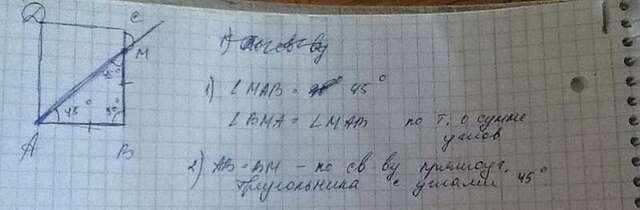 D
C
M
45°
45°
90°
A
B
1) по св-ву
1) ∠MAB = 45°
∠BMA = ∠MAB по т. о сумме
углов
2) AB = BM – по св-ву прямоуг.
треугольника с углами 45°